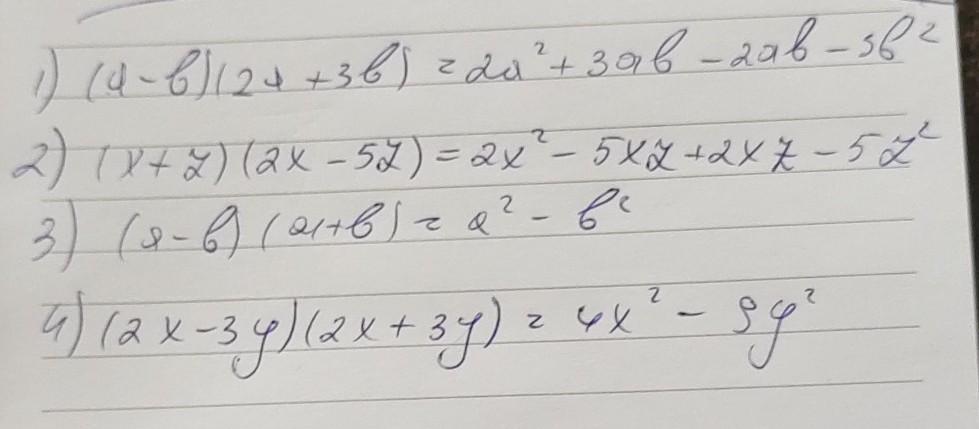 1) (a-b)(2a+3b) = 2a²+3ab-2ab-3b²
2) (x+z)(2x-5z) = 2x²-5xz+2xz-5z²
3) (a-b)(a+b) = a²-b²
4) (2x-3y)(2x+3y) = 4x²-9y²